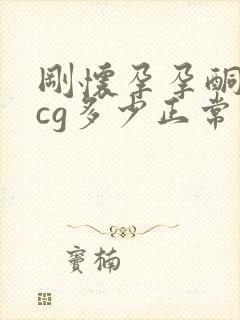 刚怀孕孕酮
cg多少正常
窦楠